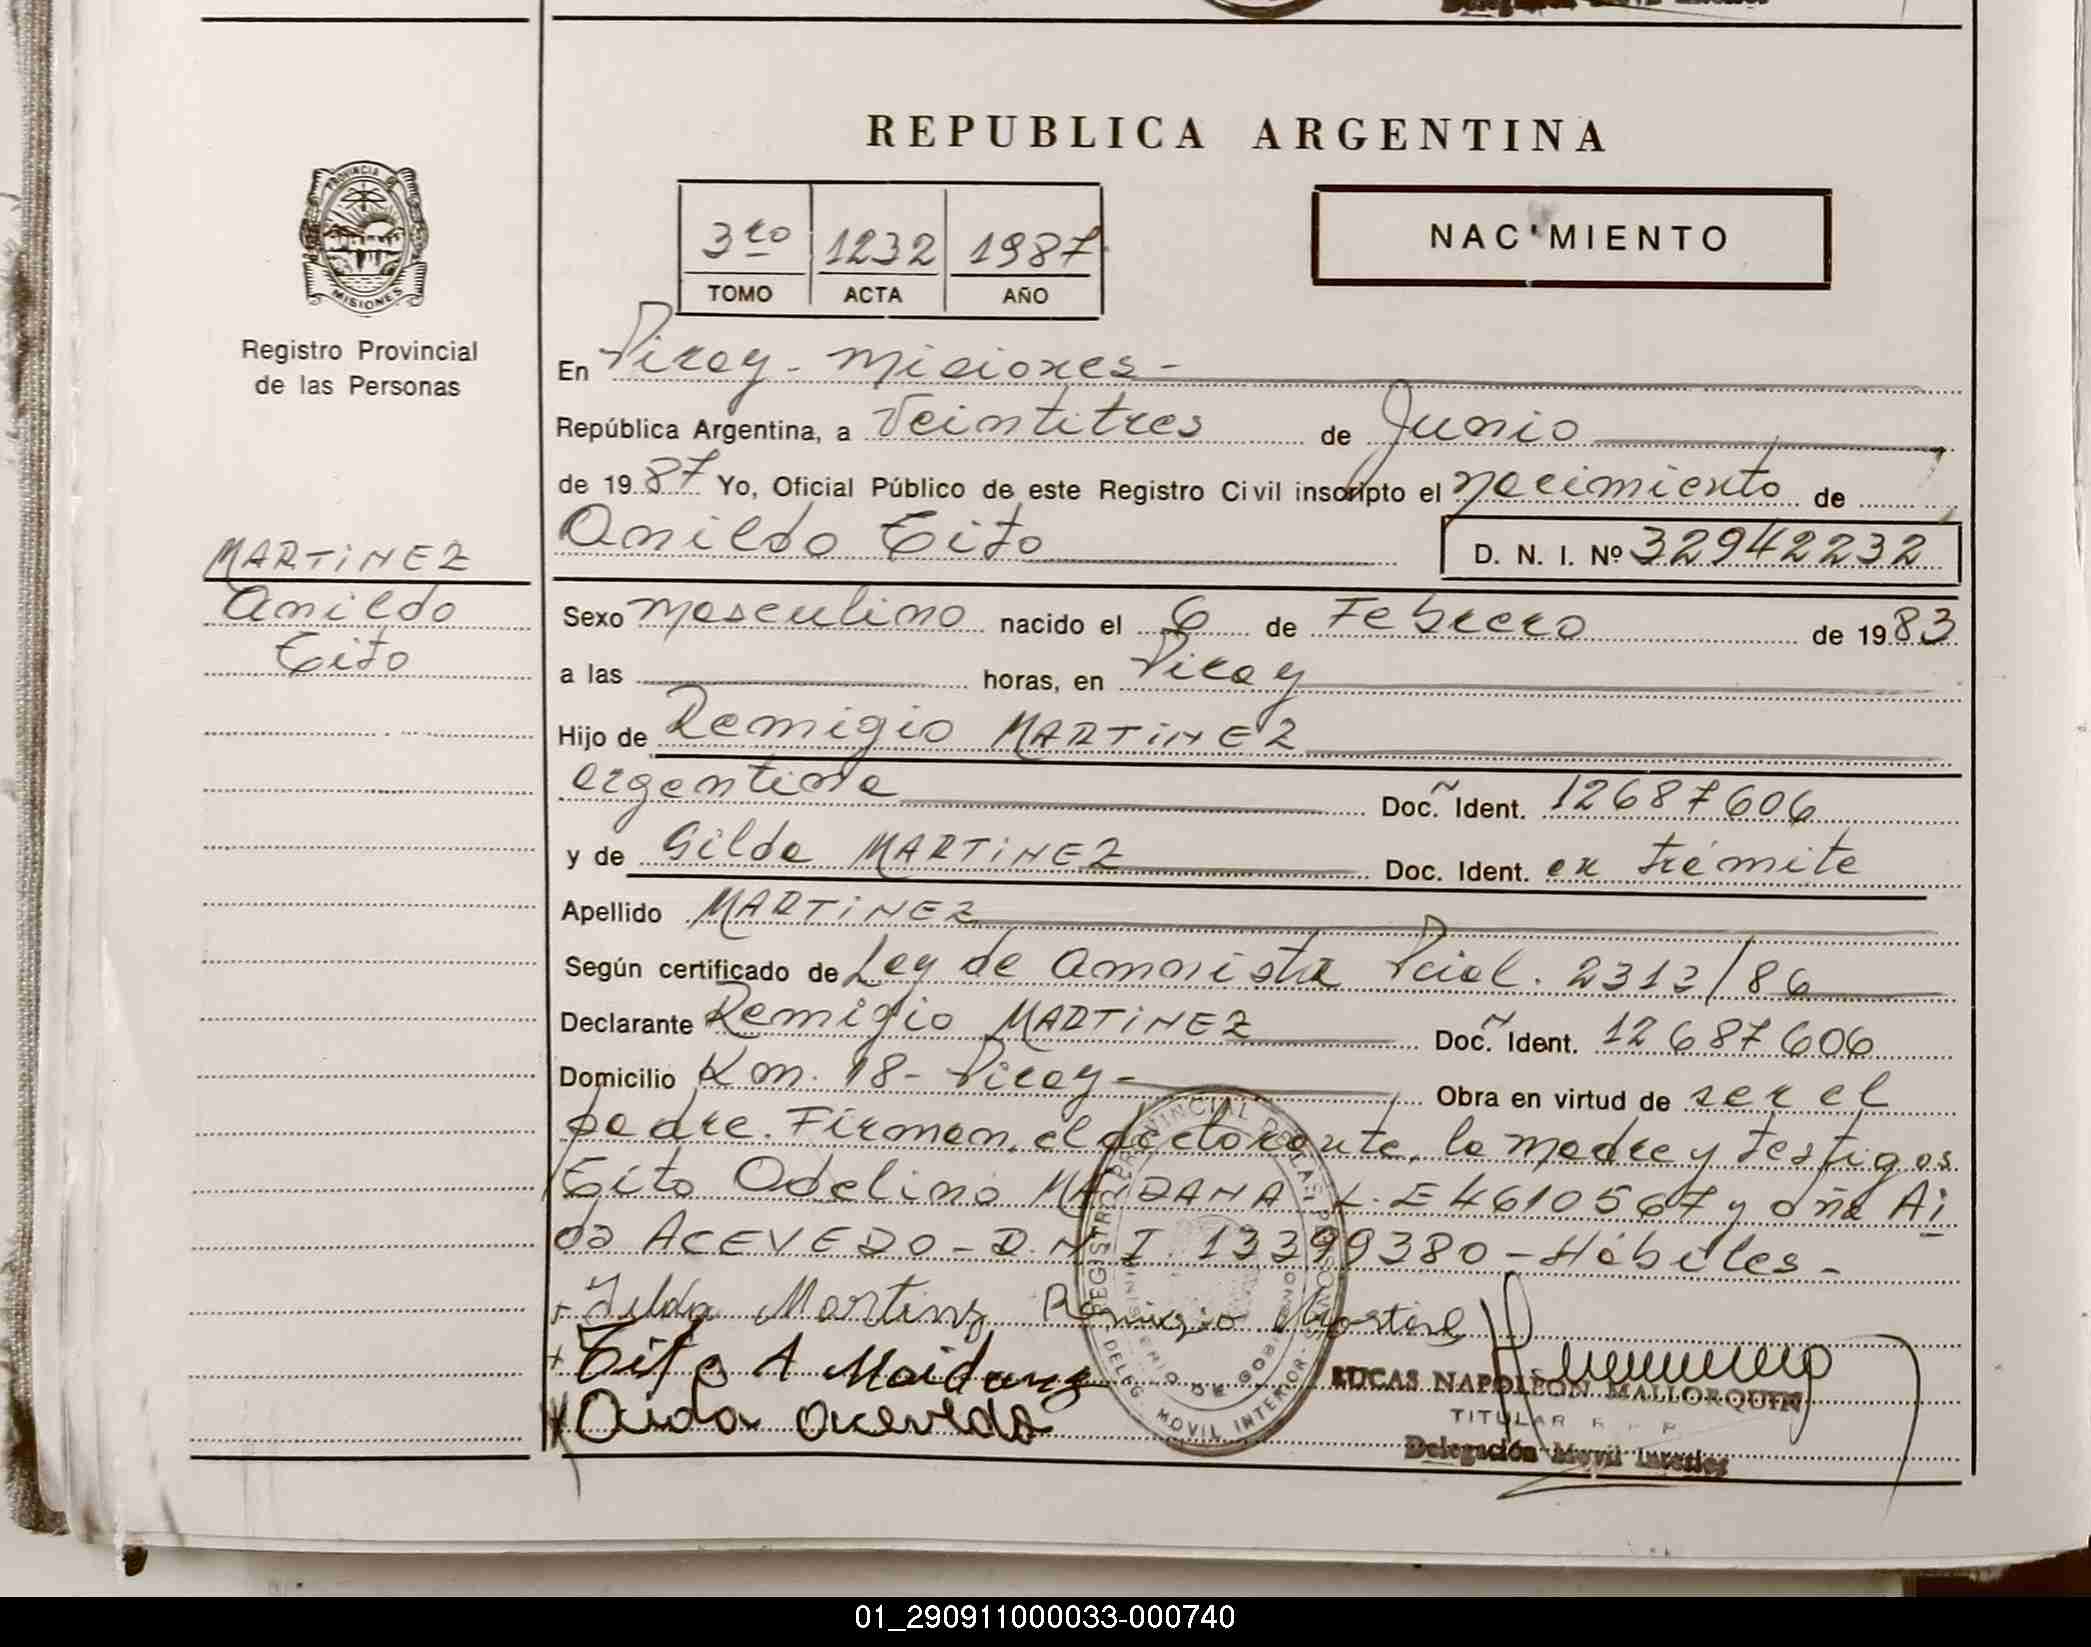 REPUBLICA ARGENTINA
PROVINCIA DE
MISIONES
Registro Provincial
de las Personas
3ro 1232 1987
TOMO ACTA AÑO
NAC'MIENTO
En Piray - Misiones -
República Argentina, a Veintitres de Junio
de 1987 Yo, Oficial Público de este Registro Civil inscripto el nacimiento de
Anildo Tito D. N. I. Nº 32942232
MARTINEZ
Anildo
Tito
Sexo masculino nacido el 6 de Febrero de 1983
a las horas, en Piray
Hijo de Remigio MARTINEZ
argentina Doc. Ident. 12687606
y de Gilda MARTINEZ Doc. Ident. en trámite
Apellido MARTINEZ
Según certificado de Ley de Amnistia Pcial. 2313/86
Declarante Remigio MARTINEZ Doc. Ident. 12687606
Domicilio Km. 18 - Piray - Obra en virtud de ser el
padre. Firman, el declarante, la madre y testigos
Tito Odelino MAIDANA L.E 4610567 y doña Ai
da ACEVEDO - D.N.I. 13399380 - Hábiles -
Gilda Martinz Remigio Martine
Tito A Maidana
Aida acevedo
REGISTRO PROVINCIAL DE LAS PERSONAS
MINISTERIO DE GOBIERNO
DELEG. MOVIL INTERIOR
LUCAS NAPOLEON MALLORQUIN
TITULAR R P P
Delegación Movil Interior
01_290911000033-000740